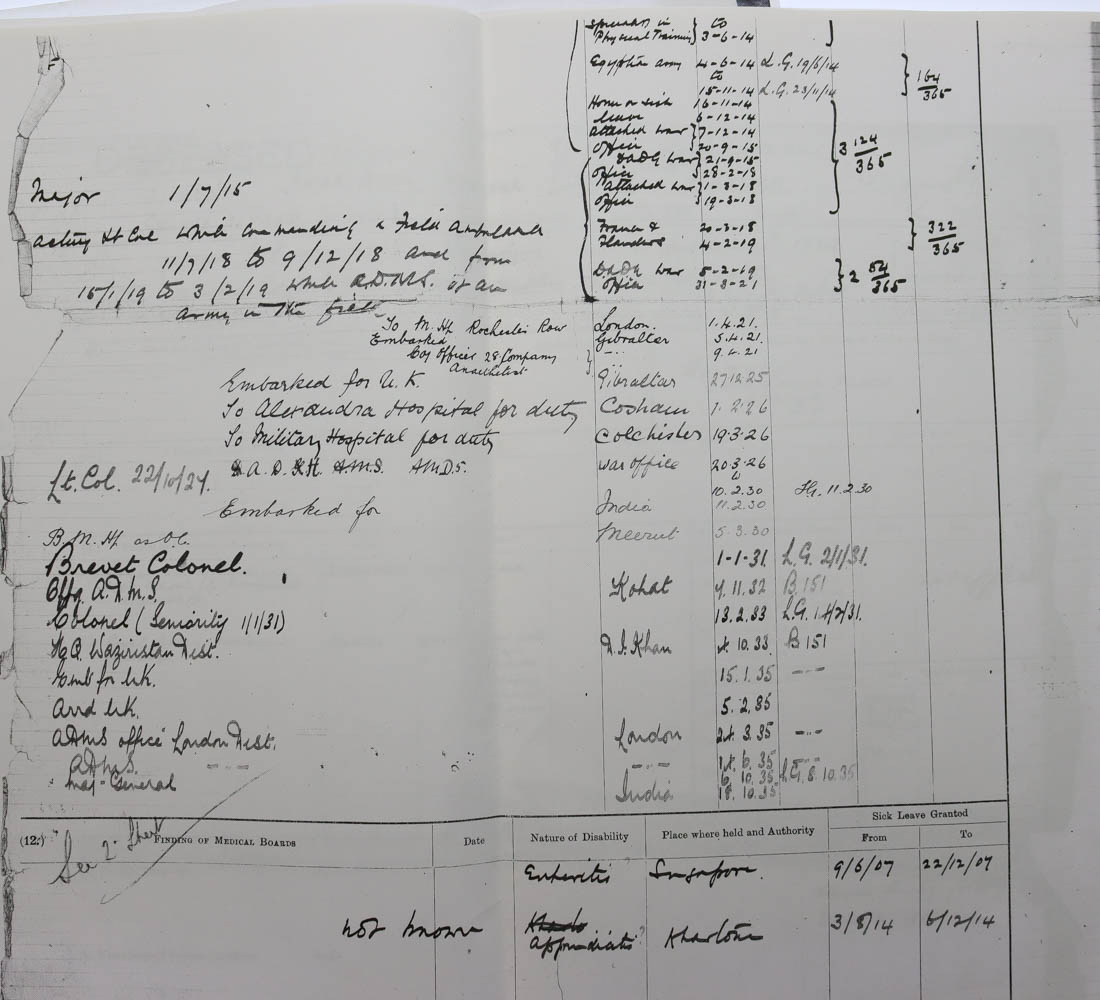 Specialist in to
Physical Training } 3-6-14
Egyptian army 4-6-14 L.G. 19/6/14
to
15-11-14 L.G. 23/11/14
164/365
Home on sick 16-11-14
leave 6-12-14
attached War 7-12-14
Office 20-9-15
3 124/365
DADG War 21-9-15
Office 28-2-18
attached War 1-3-18
Office 19-3-18
Major 1/7/15
acting Lt Col while commanding a Field Ambulance
11/9/18 to 9/12/18 and from
15/1/19 to 3/2/19 while A.D.M.S. of an
army in the field
France & 20-3-18
Flanders 4-2-19
322/365
DADG War 5-2-19
Office 31-3-21
2 54/365
To M. Hp Rochester Row London. 1.4.21.
Embarked Gibraltar 5.4.21.
Coy Officer 28 Company -"- 9.4.21
Anaesthetist
Embarked for U.K. Gibraltar 27.12.25
To Alexandra Hospital for duty Cosham 1.2.26
To Military Hospital for duty Colchester 19.3.26
A.D.H. A.M.S. AMD5. War Office 20.3.26
to
Lt. Col. 22/10/27. 10.2.30 11.2.30
Embarked for India 11.2.30
B.M.Hp as O.C. Meerut 5.3.30
Brevet Colonel. 1-1-31. L.G. 2/1/31.
Offg A.D.M.S. Kohat 4.11.32 B151
Colonel (Seniority 1/1/31) 13.2.33 L.G. 14/2/31.
H.Q. Waziristan Dist. D.I. Khan 4.10.33. B151
Emb for UK. 15.1.35 -"-
Arrd UK. 5.2.35
ADMS office London Dist. London 24.3.35 -"-
A.D.M.S. -"- -"- 14.6.35 -"-
Maj-General 6.10.35 LG, 8.10.35
India 18.10.35
See 2nd Sheet
(12.) FINDING OF MEDICAL BOARDS Date Nature of Disability Place where held and Authority Sick Leave Granted
From To
Enteritis Singapore. 9/6/07 22/12/07
not known Appendicitis Khartoum 3/8/14 6/12/14